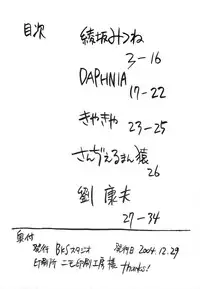 目次
綾坂みつね
3-16
DAPHNIA
17-22
きゃきゃ
23-25
さんぢぇるまん猿
26
劉 康夫
27-34
奥付
発行 B&Sスタジオ 発行日 2004.12.29
印刷所 ニモ印刷工房 様 thanks!